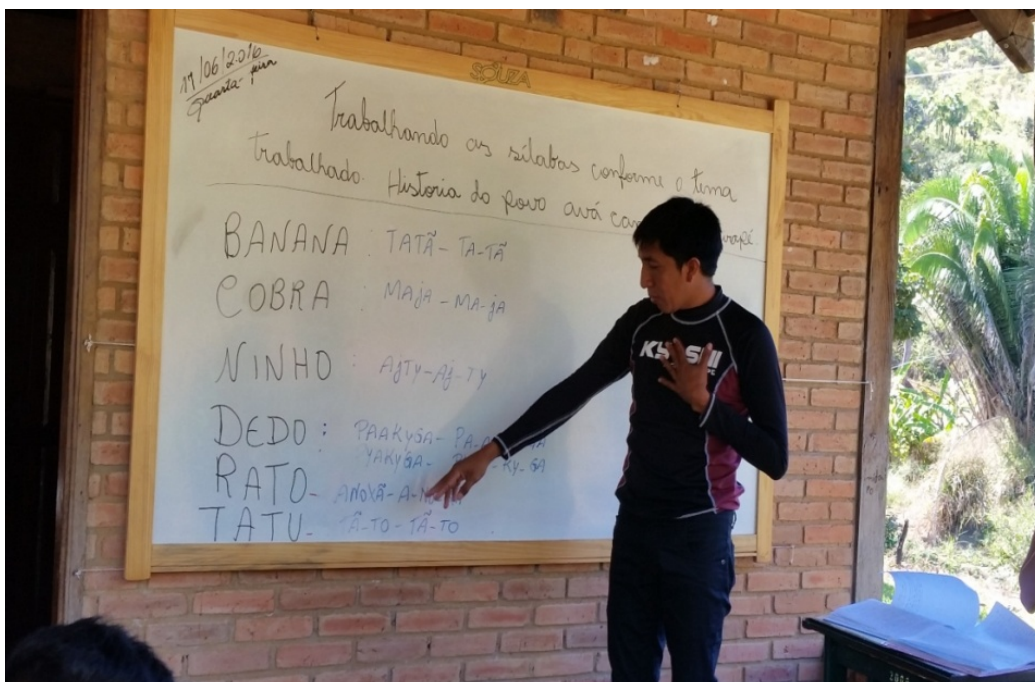 17/06/2016
Quarta-feira
SOUZA
Trabalhando as sílabas conforme o tema
trabalhado. Historia do povo avá
BANANA : TATÃ - TA-TÃ
COBRA : MAjA - MA-jA
NINHO : AjTy - Aj-Ty
DEDO : PAAKyGA - PA-A
PyAKyGA - Ky-GA
RATO - ANOYÃ - A-
TATU - TÃ-TO - TÃ-TO